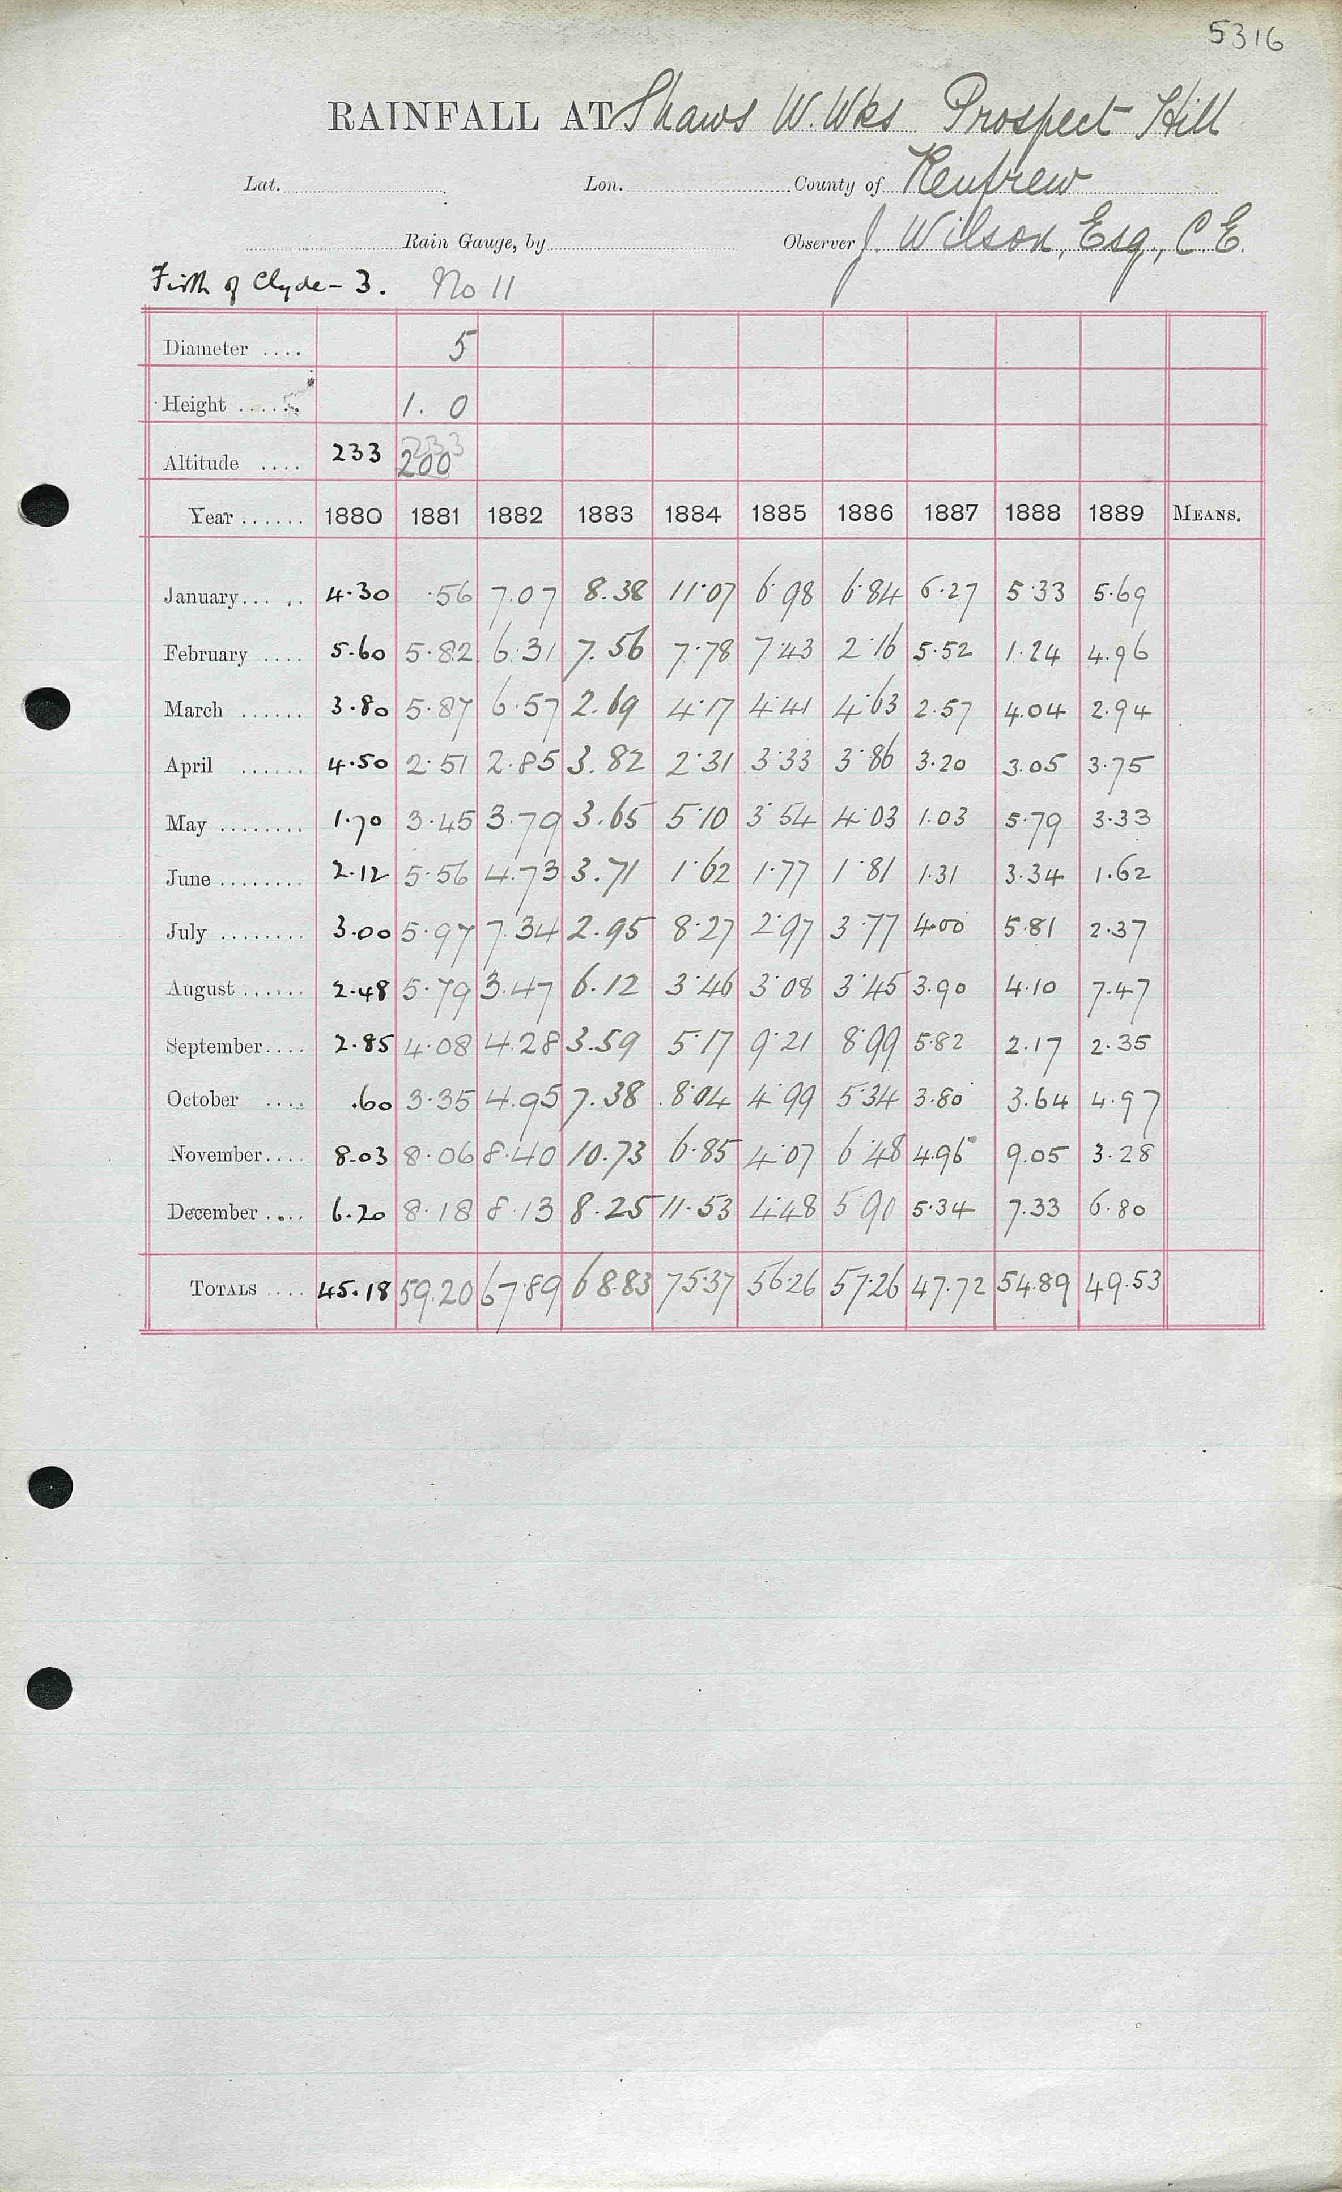 5316
RAINFALL AT Shaws W. Wks Prospect Hill
Lat. Lon. County of Renfrew
Rain Gauge, by Observer J. Wilson, Esq., C.E.
Firth of Clyde - 3. No 11
Diameter .... 5
Height ...... 1. 0
Altitude .... 233 233 200
Year ...... 1880 1881 1882 1883 1884 1885 1886 1887 1888 1889 MEANS.
January..... 4.30 .56 7.07 8.38 11.07 6.98 6.84 6.27 5.33 5.69
February .... 5.60 5.82 6.31 7.56 7.78 7.43 2.16 5.52 1.24 4.96
March ...... 3.80 5.87 6.57 2.69 4.17 4.41 4.63 2.57 4.04 2.94
April ...... 4.50 2.51 2.85 3.82 2.31 3.33 3.86 3.20 3.05 3.75
May ........ 1.70 3.45 3.79 3.65 5.10 3.54 4.03 1.03 5.79 3.33
June ........ 2.12 5.56 4.73 3.71 1.62 1.77 1.81 1.31 3.34 1.62
July ........ 3.00 5.97 7.34 2.95 8.27 2.97 3.77 4.00 5.81 2.37
August ...... 2.48 5.79 3.47 6.12 3.46 3.08 3.45 3.90 4.10 7.47
September.... 2.85 4.08 4.28 3.59 5.17 9.21 8.99 5.82 2.17 2.35
October .... .60 3.35 4.95 7.38 8.04 4.99 5.34 3.80 3.64 4.97
November.... 8.03 8.06 8.40 10.73 6.85 4.07 6.48 4.96 9.05 3.28
December .... 6.20 8.18 8.13 8.25 11.53 4.48 5.90 5.34 7.33 6.80
TOTALS .... 45.18 59.20 67.89 68.83 75.37 56.26 57.26 47.72 54.89 49.53